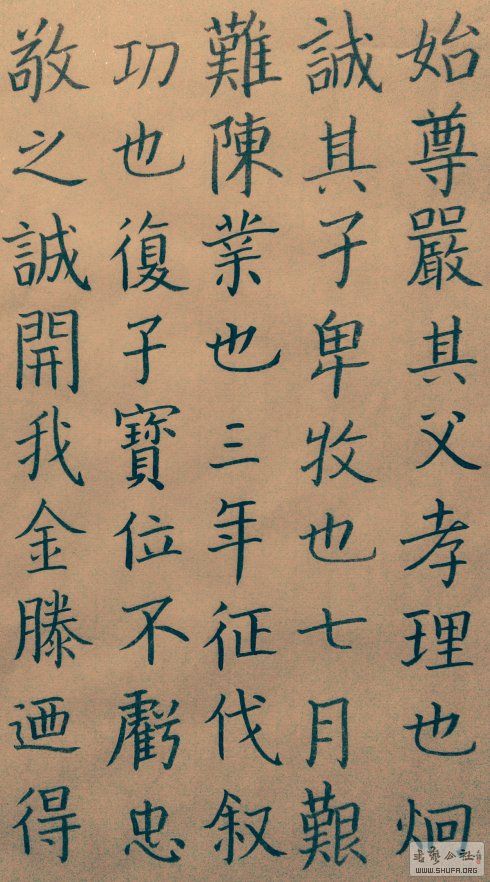 始尊嚴其父孝理也炯
誠其子卑牧也七月艱
難陳業也三年征伐叙
功也復子寶位不虧忠
敬之誠開我金滕迺得
WWW.SHUFA.ORG